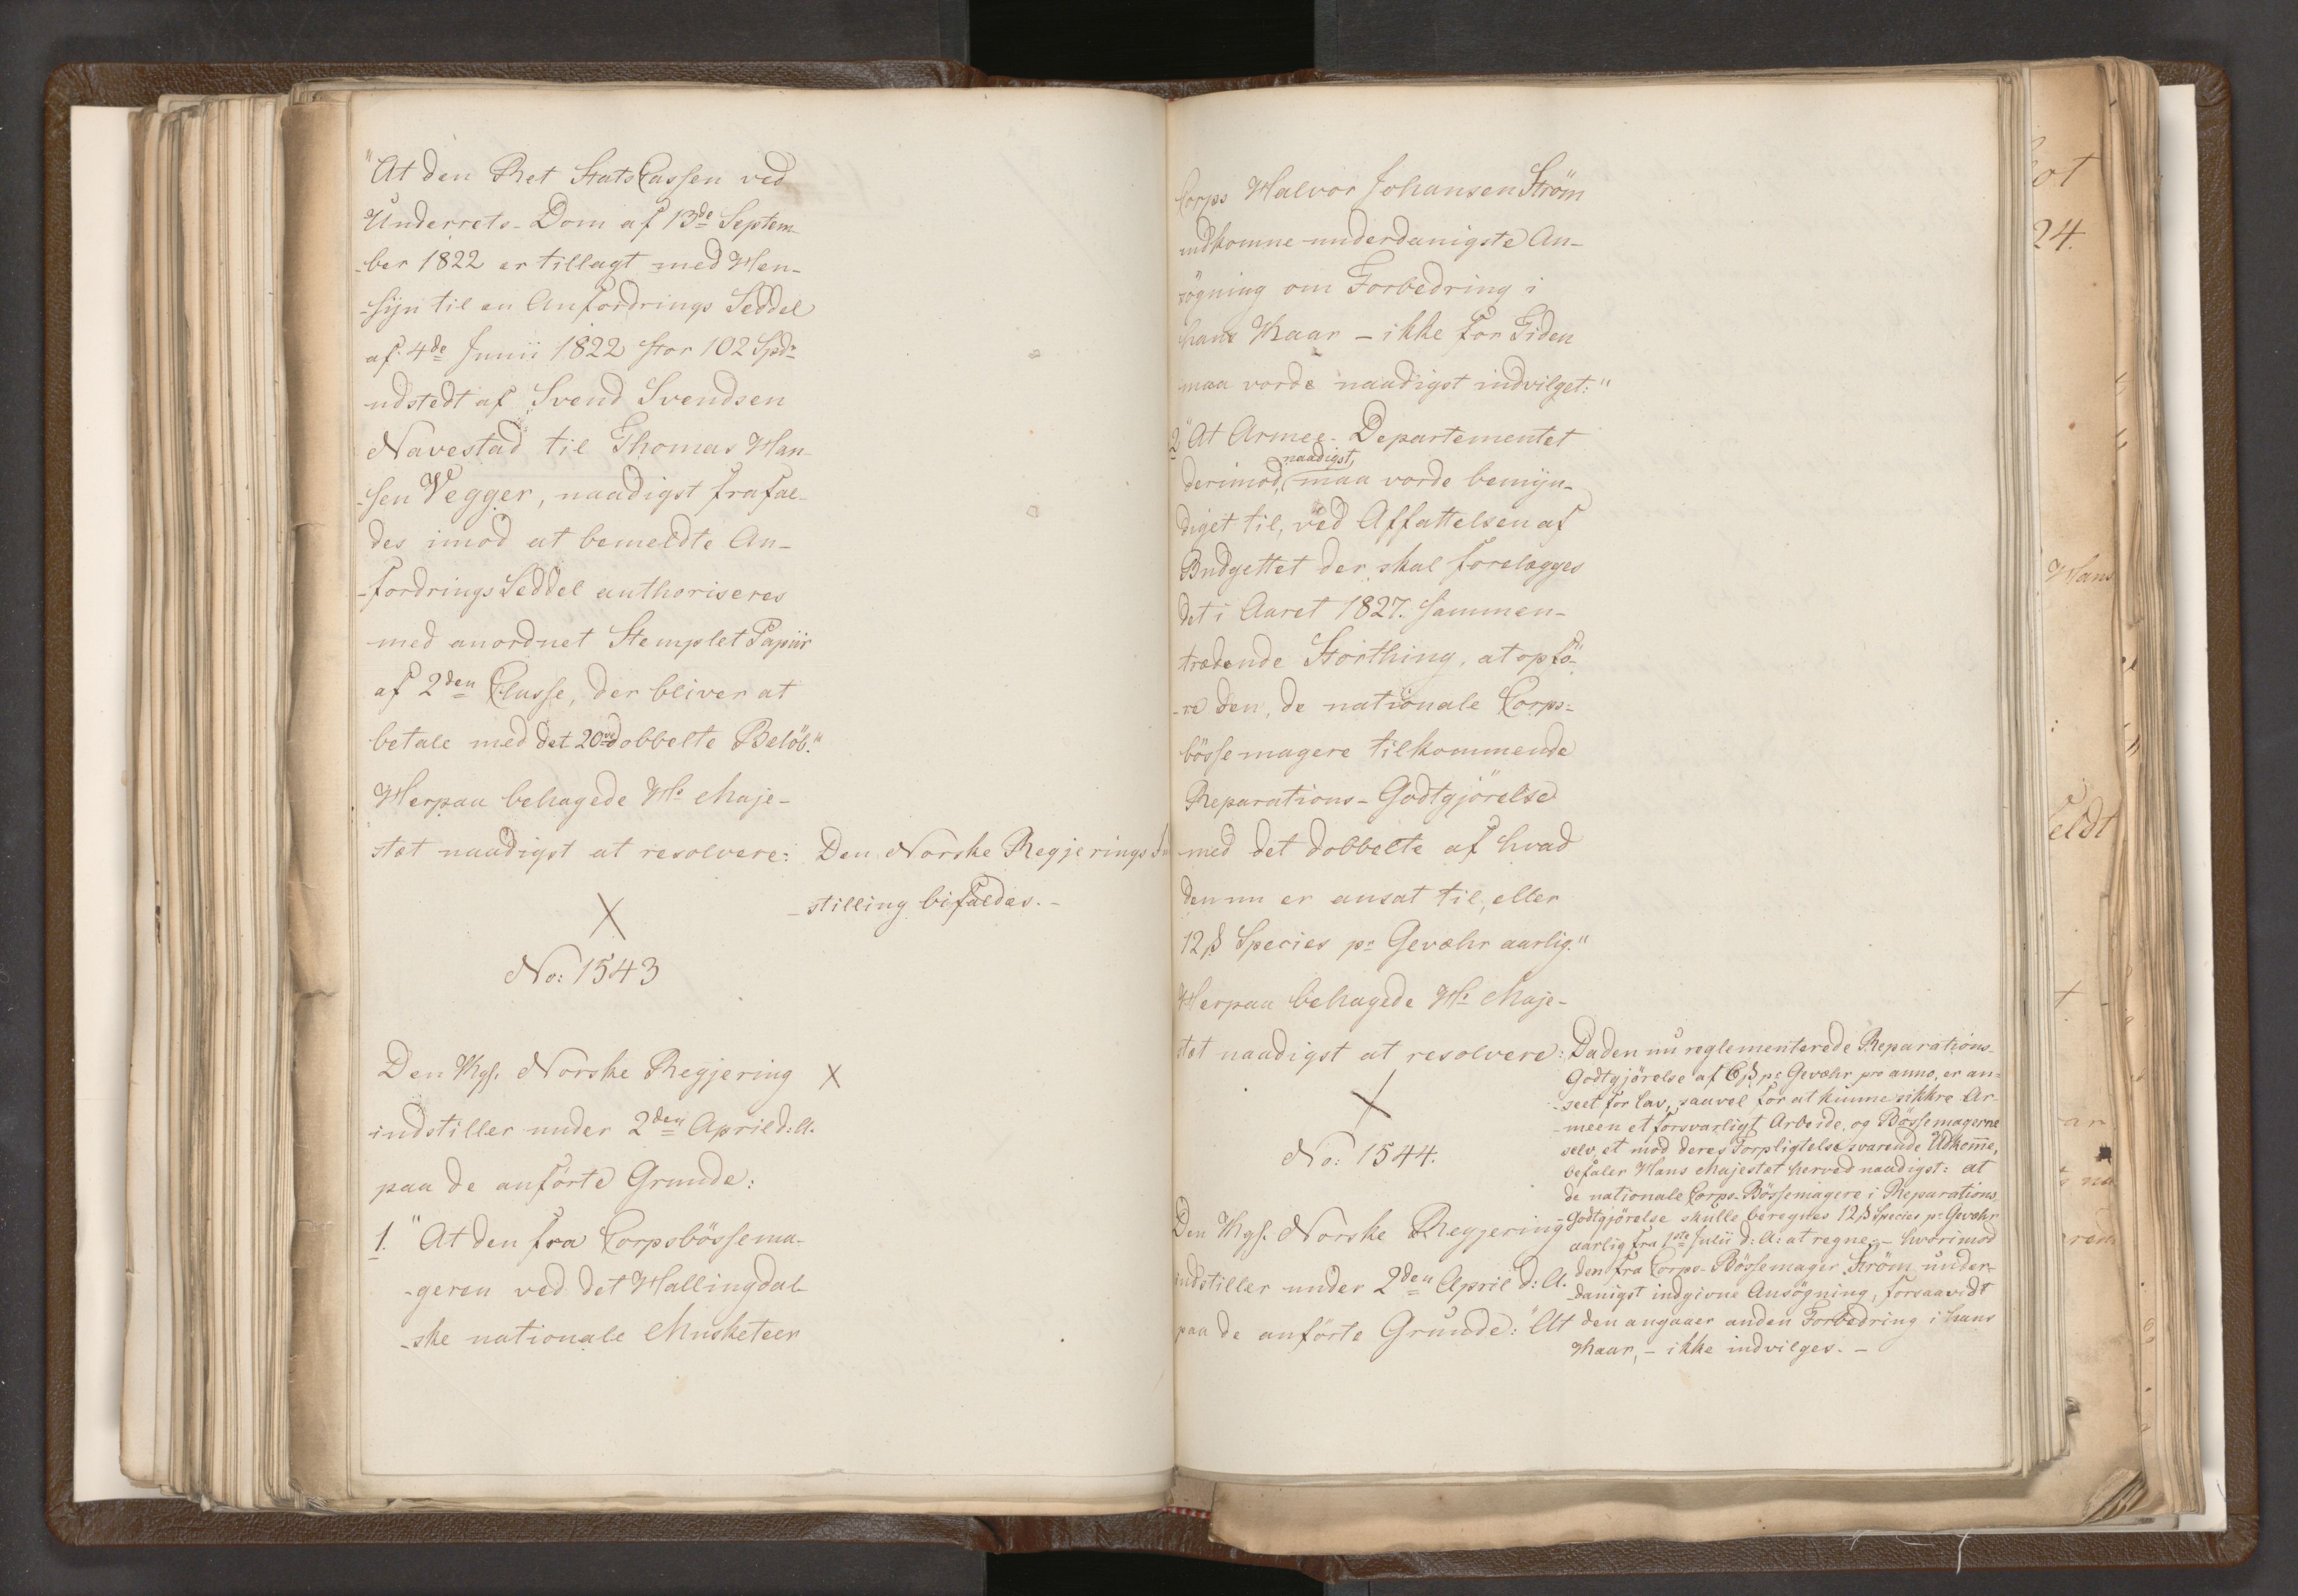 "At den Ret StatsCassen ved
Underrets-Dom af 13de Septem-
-ber 1822 er tillagt med Hen-
-syn til en Anfordrings Seddel
af 4de Junii 1822 stor 102 Spdr
udstedt af Svend Svendsen
Navestad til Thomas Han-
-sen Vegger, naadigst frafal-
des imod at bemeldte An-
-fordringsSeddel authoriseres
med anordnet Stemplet Papiir
af 2den Classe, der bliver at
betale med det 20ve dobbelte Belöb."
Herpaa behagede Hs Maje-
stæt naadigst at resolvere:
Den Norske Regjerings In
-stilling bifaldes.-
No: 1543
Den Kgl. Norske Regjering X
indstiller under 2den April d:A.
paa de anförte Grunde:
1. "At den fra Corpsbössema-
-geren ved det Hallingdal-
-ske nationale Musketeer
Corps Halvor Johansen Ström
indkomne underdanigste An-
sögning om Forbedring i
hans Kaar - ikke for Tiden
maa vorde naadigst indvilget:"
2. "At Armee-Departementet
derimod, naadigst maa vorde bemyn-
diget til, ved Affattelsen af
Budgettet der skal forelægges
det i Aaret 1827. sammen-
trædende Storthing, at opfö-
-re den, de nationale Corps-
bössemagere tilkommende
Reparations-Godtgjörelse
med det dobbelte af hvad
den nu er ansat til, eller
12 ß Species pr Gevæhr aarlig."
Herpaa behagede Hs Maje-
stæt naadigst at resolvere:
Da den nu reglementerede Reparations-
Godtgjörelse af 6 ß pr Gevæhr pro anno, er an-
-seet for lav, saavel for at kunne sikkre Ar-
-meen et forsvarligt Arbeide, og Bössemagerne
selv et mod deres Forpligtelse svarende Udkomme,
befaler Hans Majestæt herved naadigst: at
de nationale Corps-Bössemagere i Reparations
-Godtgjörelse skulle beregnes 12 ß Species pr Gevæhr
aarlig fra 1ste Julii d:A: at regne; - hvorimod
den fra Corps-Bössemager Ström under-
-danigst indgivne Ansögning, forsaavidt
den angaaer anden Forbedring i hans
Kaar, - ikke indvilges. -
No: 1544.
Den Kgl. Norske Regjering
indstiller under 2den April d:A.
paa de anförte Grunde: "At
24.
Hans